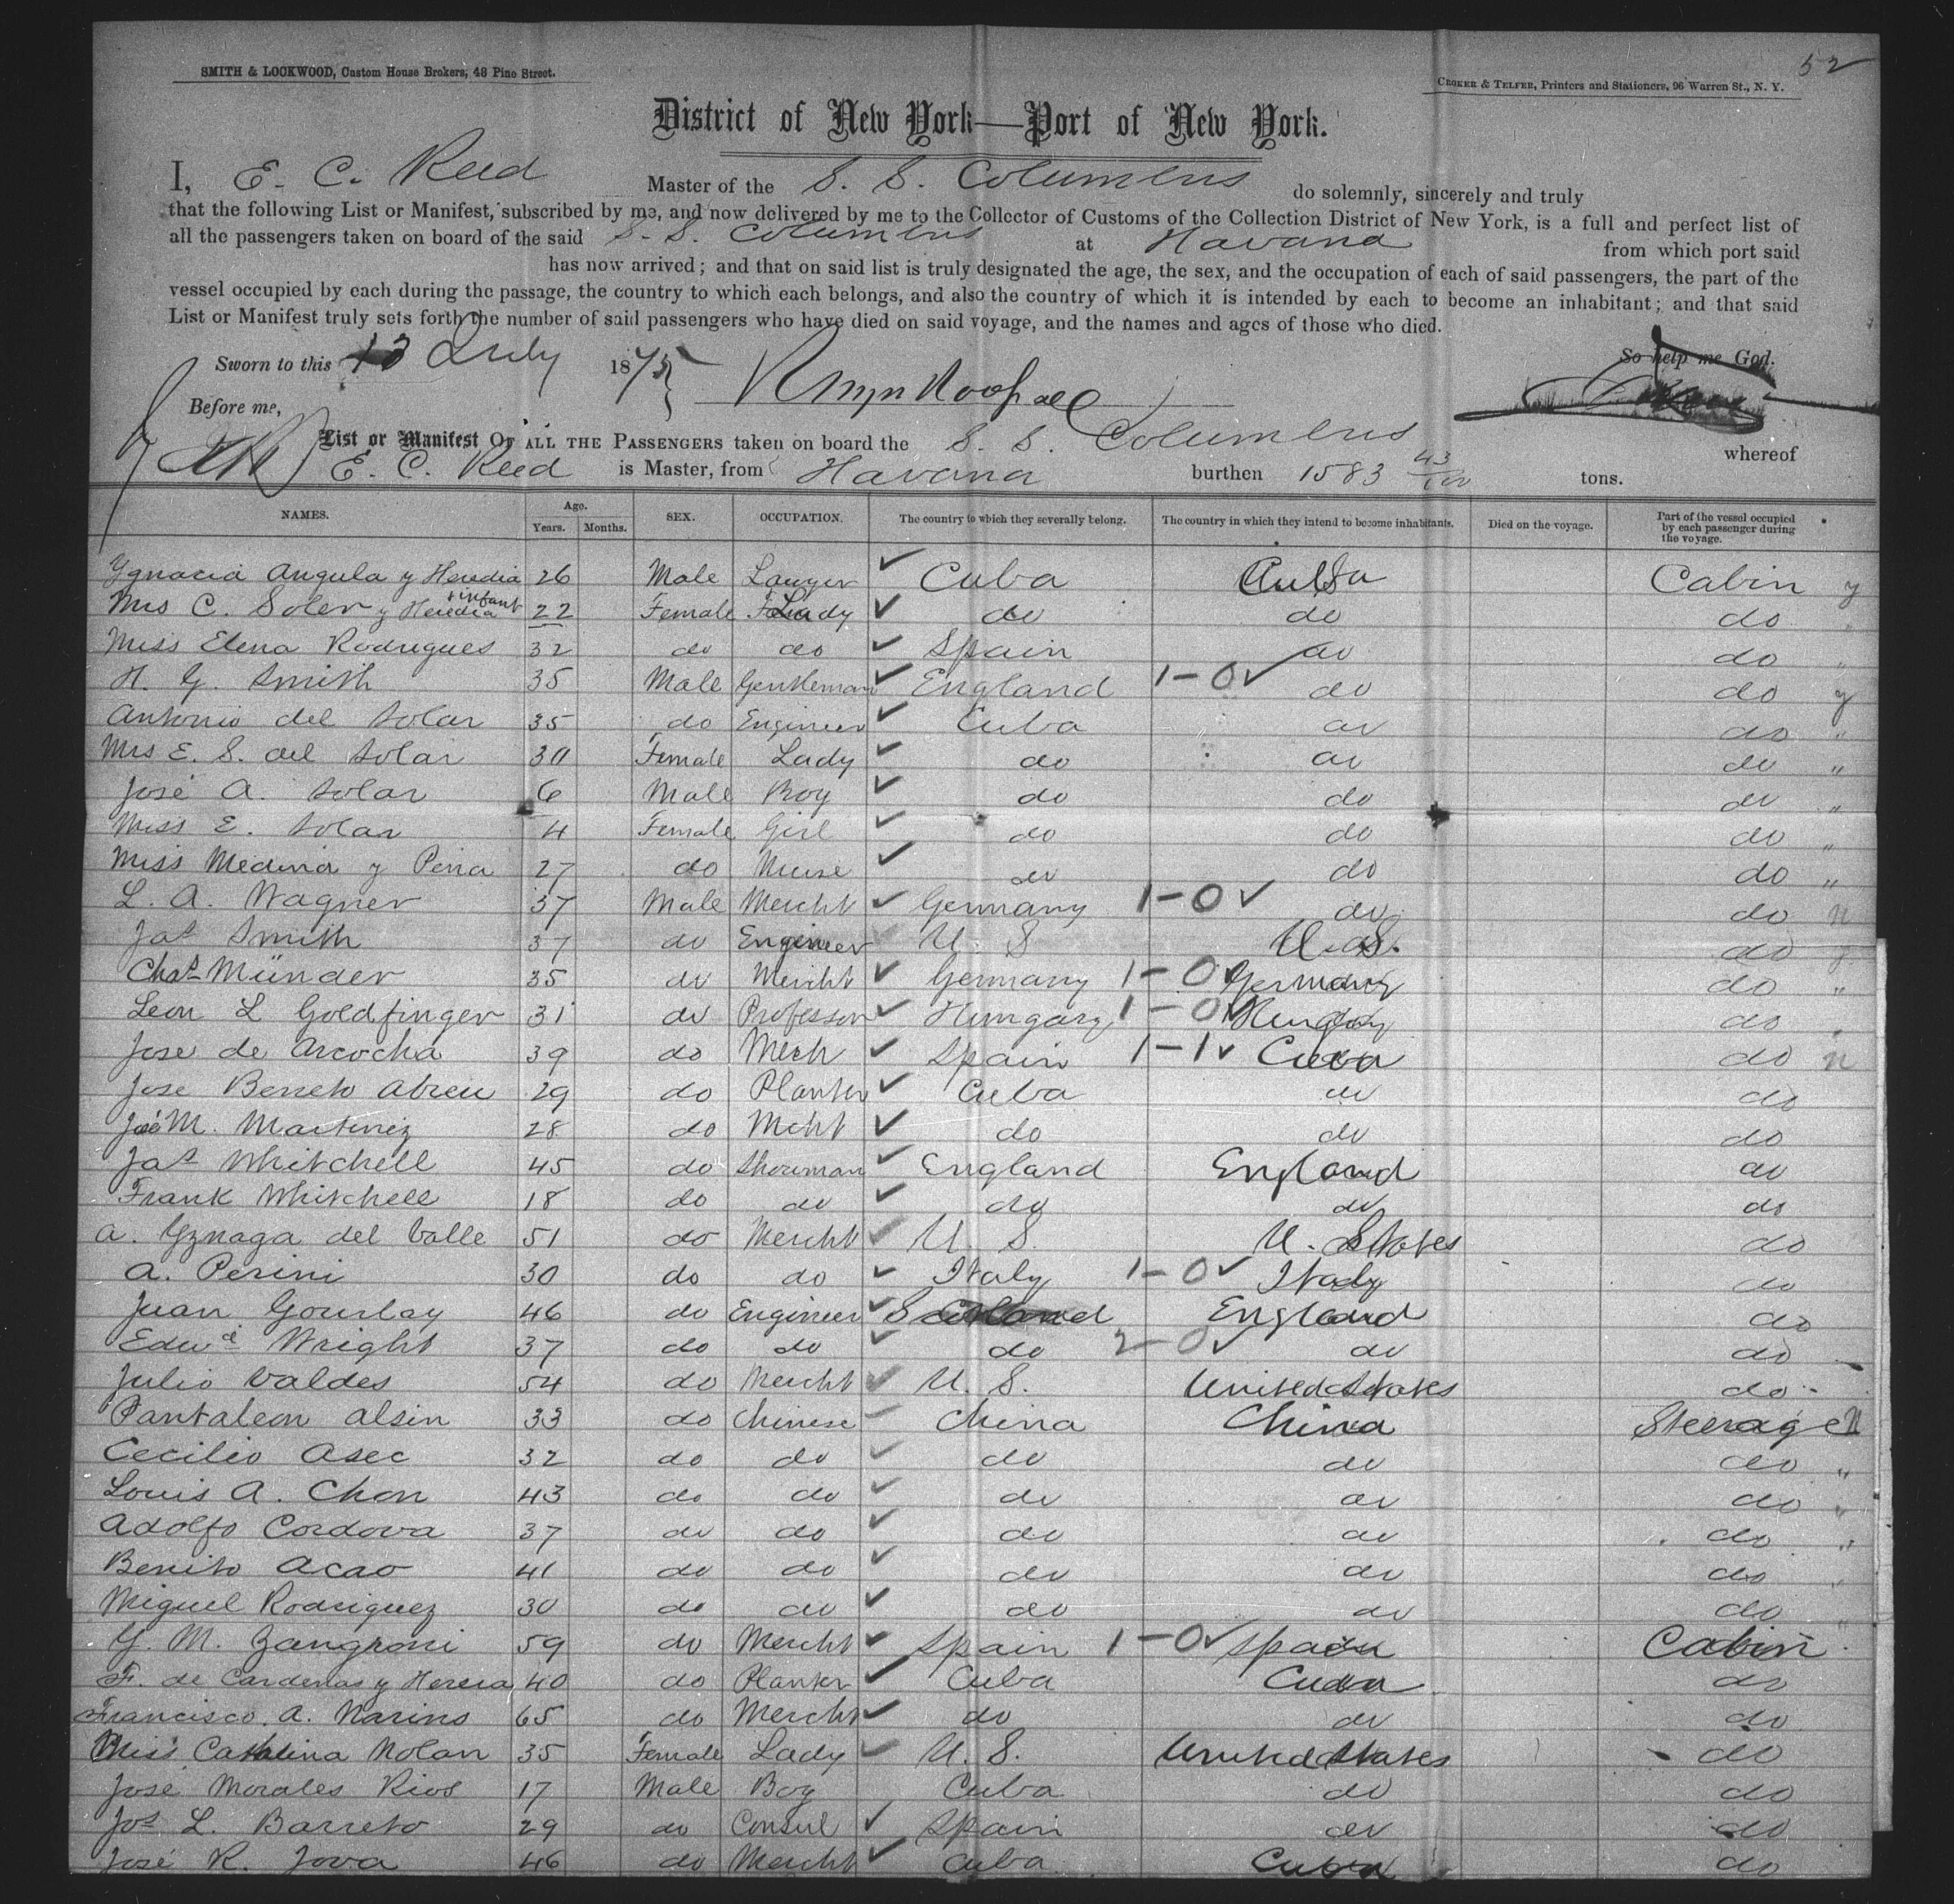 52
SMITH & LOCKWOOD, Custom House Brokers, 48 Pine Street.
CROKER & TELFER, Printers and Stationers, 96 Warren St., N. Y.
District of New York—Port of New York.
I, E. C. Reed Master of the S. S. Columbus do solemnly, sincerely and truly
that the following List or Manifest, subscribed by me, and now delivered by me to the Collector of Customs of the Collection District of New York, is a full and perfect list of
all the passengers taken on board of the said S. S. Columbus at Havana from which port said
has now arrived; and that on said list is truly designated the age, the sex, and the occupation of each of said passengers, the part of the
vessel occupied by each during the passage, the country to which each belongs, and also the country of which it is intended by each to become an inhabitant; and that said
List or Manifest truly sets forth the number of said passengers who have died on said voyage, and the names and ages of those who died.
Sworn to this 13 July 1875 So help me God.
Before me,
List or Manifest OF ALL THE PASSENGERS taken on board the S. S. Columbus whereof
E. C. Reed is Master, from Havana burthen 1583 43/100 tons.
NAMES. Age. Years. Months. SEX. OCCUPATION. The country to which they severally belong. The country in which they intend to become inhabitants. Died on the voyage. Part of the vessel occupied by each passenger during the voyage.
Ygnacia Angula y Heredia 26 Male Lawyer Cuba Cuba Cabin y
Mrs C. Soler y Heredia + infant 22 Female Lady do do do "
Miss Elena Rodrigues 32 do do Spain do do "
H. G. Smith 35 Male Gentleman England 1-0 do do y
Antonio del Solar 35 do Engineer Cuba do do "
Mrs E. S. del Solar 30 Female Lady do do do "
José A. Solar 6 Male Boy do do do "
Miss E. Solar 4 Female Girl do do do "
Miss Medina y Pena 27 do Nurse do do do "
L. A. Wagner 37 Male Mercht Germany 1-0 do do n
Jas Smith 37 do Engineer U. S U.S. do y
Chas Münder 35 do Mercht Germany 1-0 Germany do "
Leon L Goldfinger 31 do Professor Hungary 1-0 Hungary do "
Jose de Arcocha 39 do Mech Spain 1-1 Cuba do n
Jose Beneto Abreu 29 do Planter Cuba do do
José M. Martinez 28 do Mcht do do do
Jas Whitchell 45 do Showman England England do
Frank Whitchell 18 do do do do do
A. Yznaga del Valle 51 do Mercht U. S. U. States do
A. Perini 30 do do Italy 1-0 Italy do
Juan Gourlay 46 do Engineer Scotland England do
Edwd Wright 37 do do do 2-0 do do
Julio Valdes 54 do Mercht U. S. United States do
Pantaleon Alsin 33 do Chinese China China Steerage N
Cecilio Asec 32 do do do do do "
Louis A. Chon 43 do do do do do "
Adolfo Cordova 37 do do do do do "
Benito Acao 41 do do do do do "
Miguel Rodriguez 30 do do do do do "
Y. M. Zangroni 59 do Mercht Spain 1-0 Spain Cabin
F. de Cardenas y Herera 40 do Planter Cuba Cuba do
Francisco A. Narins 65 do Mercht do do do
Miss Catalina Nolan 35 Female Lady U. S. United States do
José Morales Rios 17 Male Boy Cuba do do
Jos L. Barreto 29 do Consul Spain do do
José R. Jova 46 do Mercht Cuba Cuba do